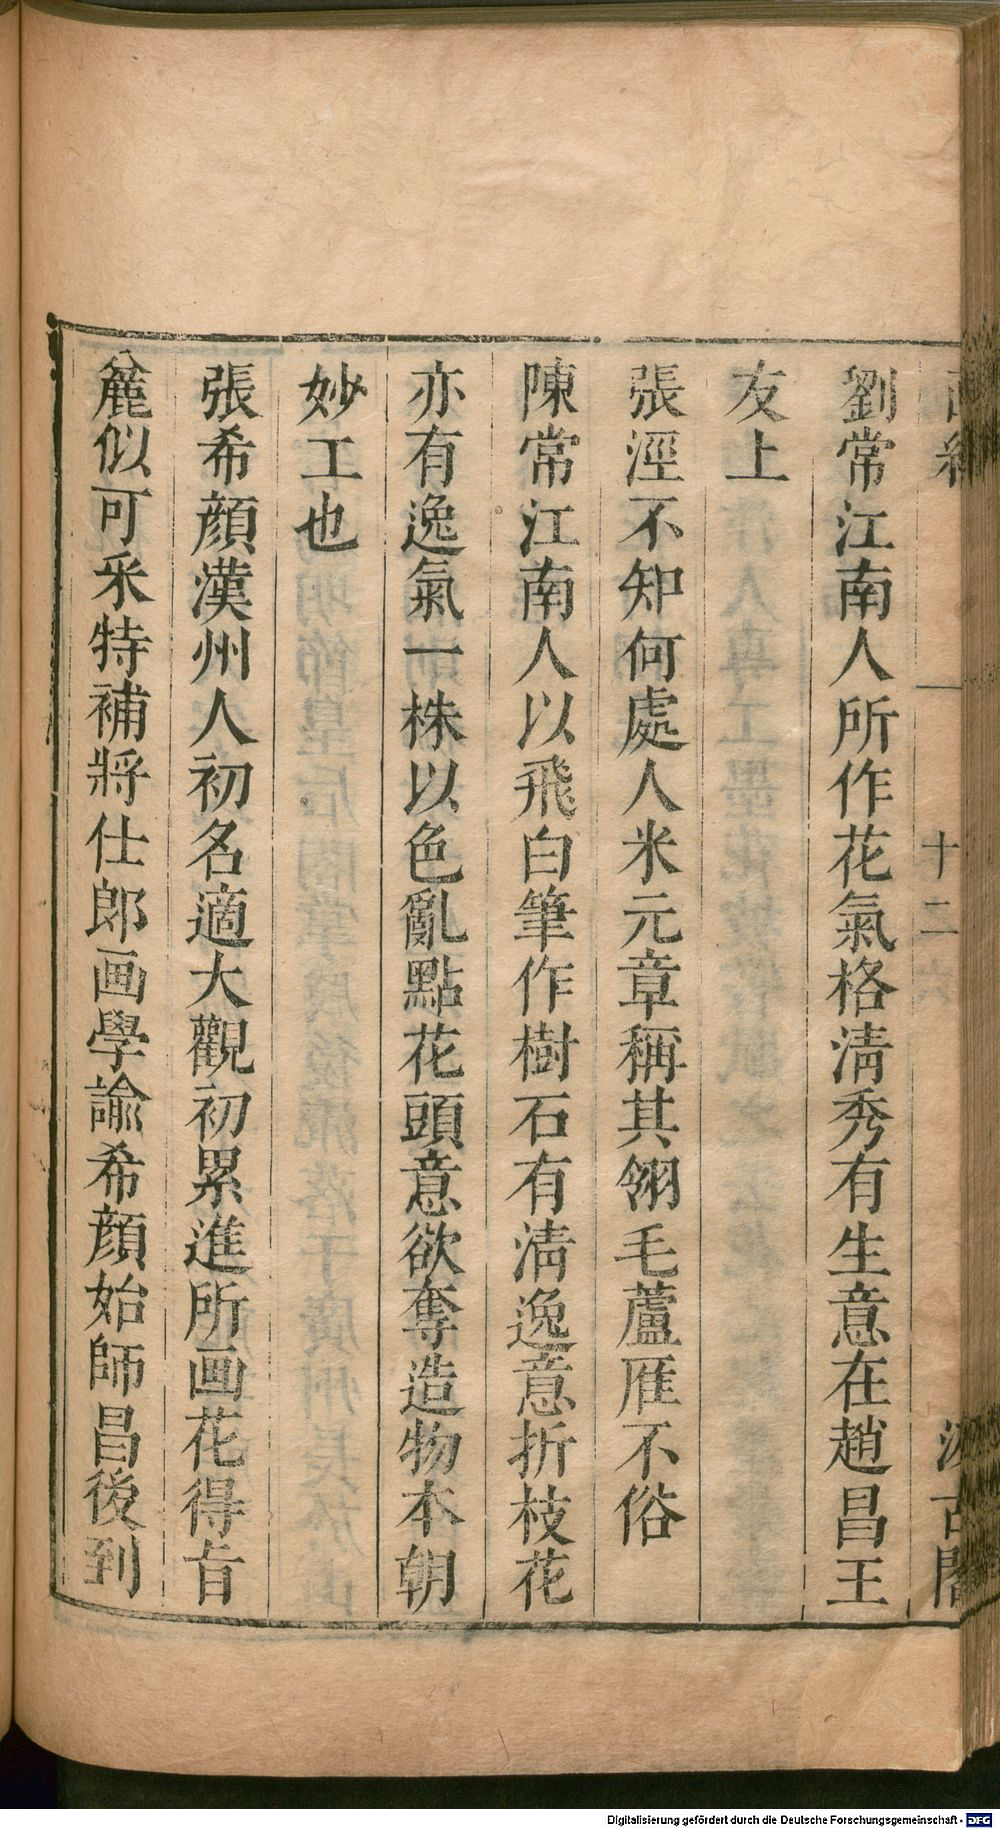 十二
古閣
劉常江南人所作花氣格清秀有生意在趙昌王
友上
張湮不知何處人米元章稱其翎毛蘆雁不俗
陳常江南人以飛白筆作樹石有清逸意折枝花
亦有逸氣一株以色亂點花頭意欲奪造物本朝
妙工也
張希顔漢州人初名適大觀初累進所画花得旨
麄似可采特補將仕郎画學諭希顔始師昌後到
Digitalisierung gefördert durch die Deutsche Forschungsgemeinschaft - DFG